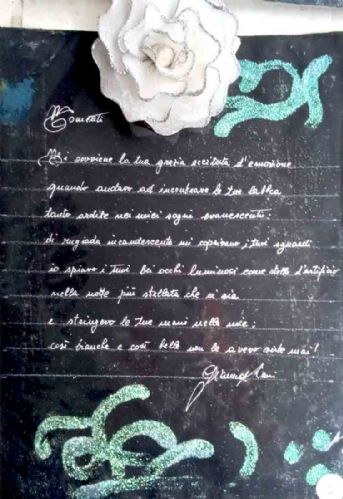 Momenti
Mi sovviene la tua grazia eccitata d'emozione
quando andavo ad incontrare le tue labbra
tanto ardite nei miei sogni evanescenti
di rugiada incandescente mi coprivano i tuoi sguardi
io spiavo i tuoi bei occhi luminosi come delle d'artificio
nella notte più stellata che ci sia
e stringevo le tue mani nelle mie;
così bianche e così belle non le avevo viste mai!